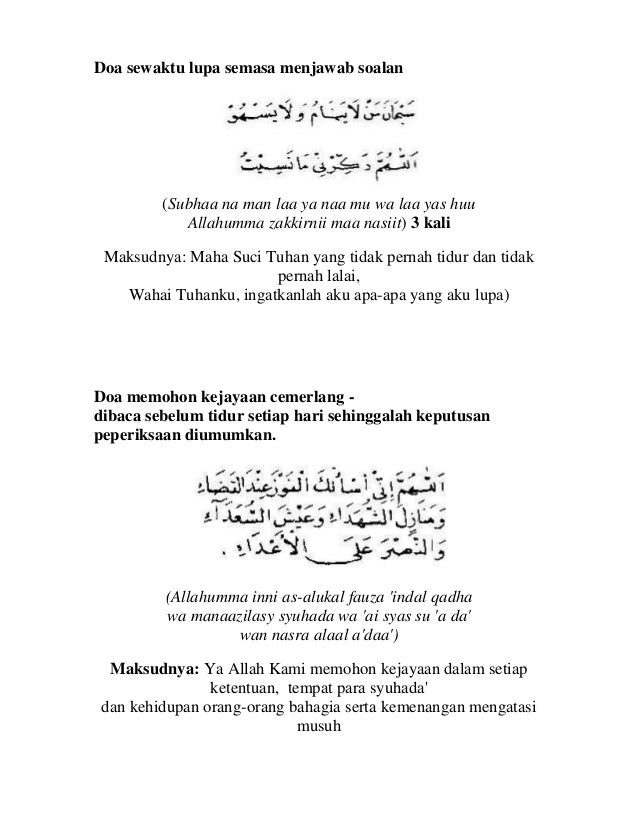 Doa sewaktu lupa semasa menjawab soalan
سُبْحَانَ مَنْ لَا يَنَامُ وَلَا يَسْهُوْ
اَللّٰهُمَّ ذَكِّرْنِيْ مَا نَسِيْتُ
(Subhaa na man laa ya naa mu wa laa yas huu
Allahumma zakkirnii maa nasiit) 3 kali
Maksudnya: Maha Suci Tuhan yang tidak pernah tidur dan tidak
pernah lalai,
Wahai Tuhanku, ingatkanlah aku apa-apa yang aku lupa)
Doa memohon kejayaan cemerlang -
dibaca sebelum tidur setiap hari sehinggalah keputusan
peperiksaan diumumkan.
اَللّٰهُمَّ اِنِّيْ أَسْأَلُكَ الْفَوْزَ عِنْدَ الْقَضَاءِ
وَمَنَازِلَ الشُّهَدَاءِ وَعَيْشَ السُّعَدَآءِ
وَالنَّصْرَ عَلَى الْأَعْدَاءِ .
(Allahumma inni as-alukal fauza 'indal qadha
wa manaazilasy syuhada wa 'ai syas su 'a da'
wan nasra alaal a'daa')
Maksudnya: Ya Allah Kami memohon kejayaan dalam setiap
ketentuan, tempat para syuhada'
dan kehidupan orang-orang bahagia serta kemenangan mengatasi
musuh